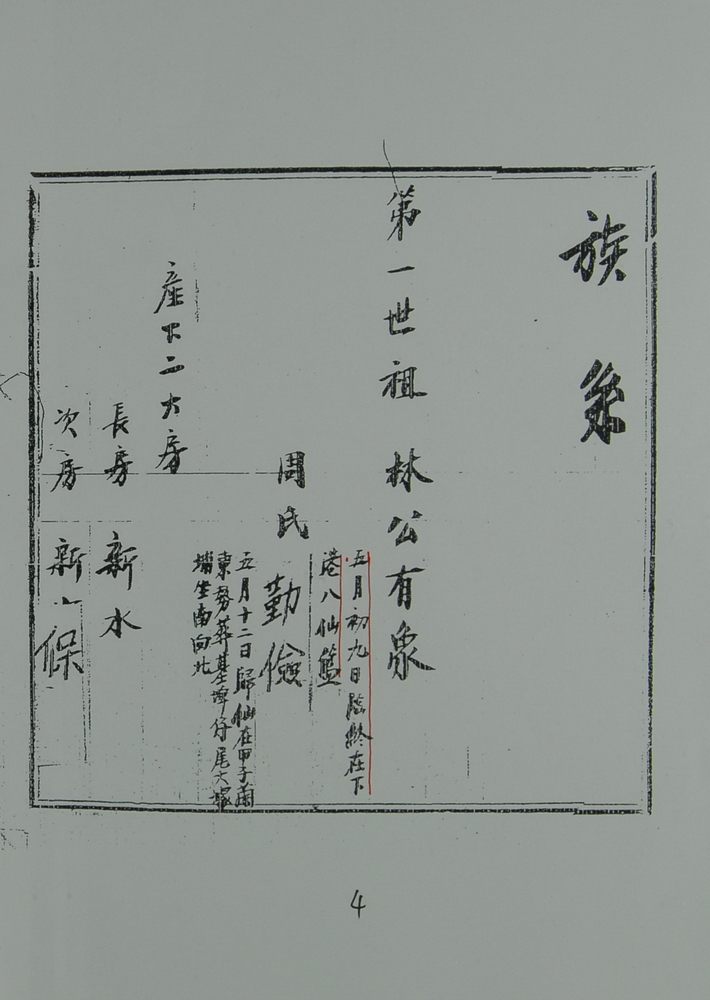 族系
第一世祖 林公有象
五月初九日臨終在下
港八仙籃
周氏 勤儉
五月十二日歸仙在甲子蘭
東勢葬墓埤仔尾大塚
墘坐南向北
產下二大房
長房 新水
次房 新保
4